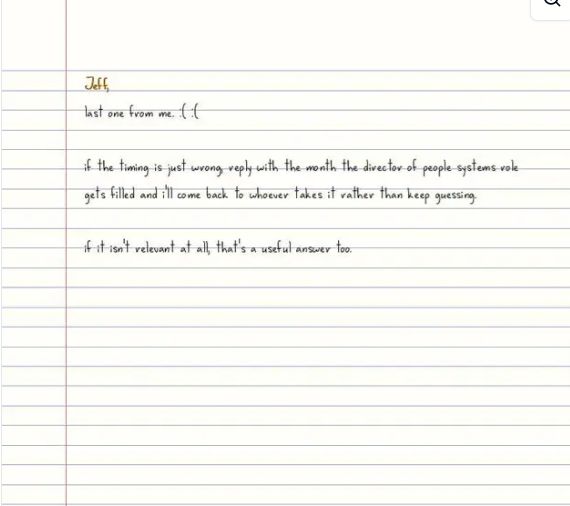 Jeff,
last one from me. :( :(
if the timing is just wrong, reply with the month the director of people systems role
gets filled and i'll come back to whoever takes it rather than keep guessing.
if it isn't relevant at all, that's a useful answer too.